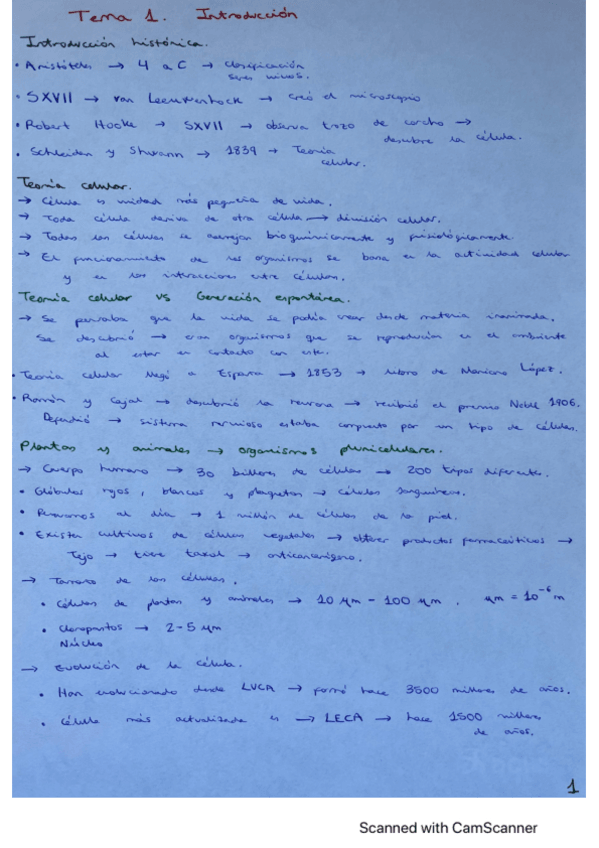 Tema 1. Introducción
Introducción histórica.
• Aristóteles → 4 a C → clasificación
seres vivos.
• SXVII → van Leeuwenhock → creó el microscopio
• Robert Hooke → SXVII → observa trozo de corcho →
descubre la célula.
• Schleiden y Shwann → 1839 → Teoría
celular.
Teoría celular.
→ Célula es unidad más pequeña de vida.
→ Toda célula deriva de otra célula → división celular.
→ Todas las células se asemejan bioquímicamente y fisiológicamente.
→ El funcionamiento de los organismos se basa en la actividad celular
y en las interacciones entre células.
Teoría celular vs Generación espontánea.
→ Se pensaba que la vida se podía crear desde materia inanimada.
Se descubrió → eran organismos que se reproducían en el ambiente
al estar en contacto con este.
• Teoría celular llegó a España → 1853 → libro de Mariano López.
• Ramón y Cajal → descubrió la neurona → recibió el premio Nobel 1906.
Defendió → sistema nervioso estaba compuesto por un tipo de células.
Plantas y animales → organismos pluricelulares.
→ Cuerpo humano → 30 billones de células → 200 tipos diferentes.
• Glóbulos rojos, blancos y plaquetas → células sanguíneas.
• al día → 1 millón de células de la piel.
• Existen cultivos de células vegetales → obtener productos farmacéuticos →
Tejo → tiene taxol → anticancerígeno.
→ Tamaño de las células.
• Células de plantas y animales → 10 μm - 100 μm. μm = 10⁻⁶ m
• Cloroplastos → 2-5 μm
Núcleo
→ Evolución de la célula.
• Han evolucionado desde LUCA → formó hace 3500 millones de años.
• Célula más actualizada es → LECA → hace 1500 millones
de años.
1
Scanned with CamScanner